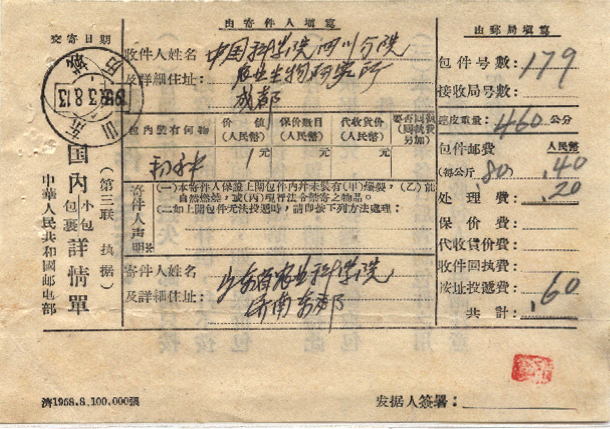 交寄日期
由寄件人填寫
由郵局填寫
收件人姓名
及詳細住址:
中国科学院四川分院
农业生物研究所
成都
包件号數: 179
接收局号數:
連皮重量: 460 公分
包內裝有何物
价值
(人民幣)
保价数目
(人民幣)
代收貨价
(人民幣)
1 元
元
元
包件邮費 人民幣
(每公斤 .80) .40
处理費: .20
保价費:
代收貨价費:
收件回执費:
按址投遞費:
共計: .60
寄件人声明
(一)本寄件人保證上開包件內并未裝有(甲)爆裂,(乙)能
自然燃燒,或(丙)現行法令能寄之物品。
(二)如上開包件无法投遞时,請即按下列方法處理:
寄件人姓名
及詳細住址:
山东省农业科学院
济南东郊
国內 小包 包裹 詳情單
(第三联 执据)
中華人民共和國邮电部
山东
1958.8.13
濟1958.8.100,000張
发据人簽署: